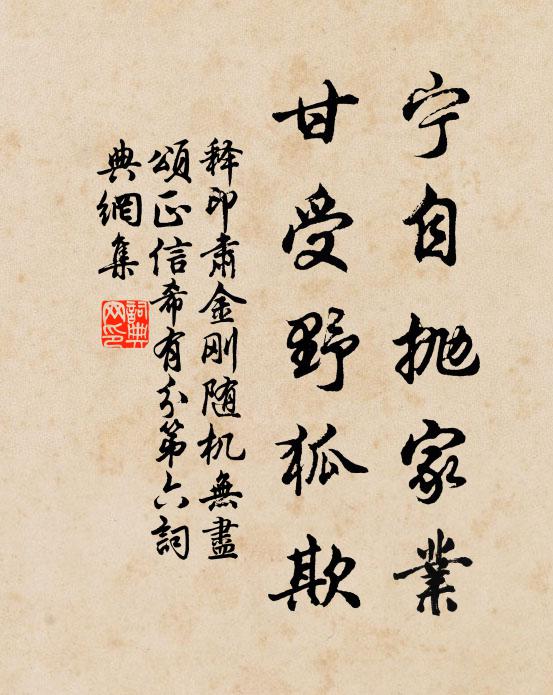 宁自抛家業
甘受野狐欺
释印肃金刚随机無盡
頌正信希有分第六詞
典網集
詞典网印